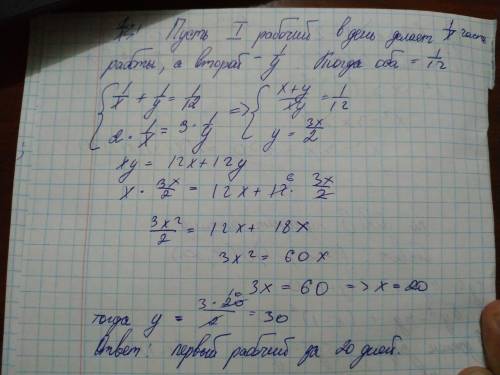 Пусть I рабочий в день делает 1/x часть
работы, а второй – 1/y Тогда оба = 1/12
{ 1/x + 1/y = 1/12 => { (x+y)/xy = 1/12
2 · 1/x = 3 · 1/y y = 3x/2
xy = 12x + 12y
x · 3x/2 = 12x + 12 6 · 3x/2
3x²/2 = 12x + 18x
3x² = 60x
3x = 60 => x = 20
тогда y = 3 · 20 10 / 2 = 30
Ответ: первый рабочий за 20 дней.